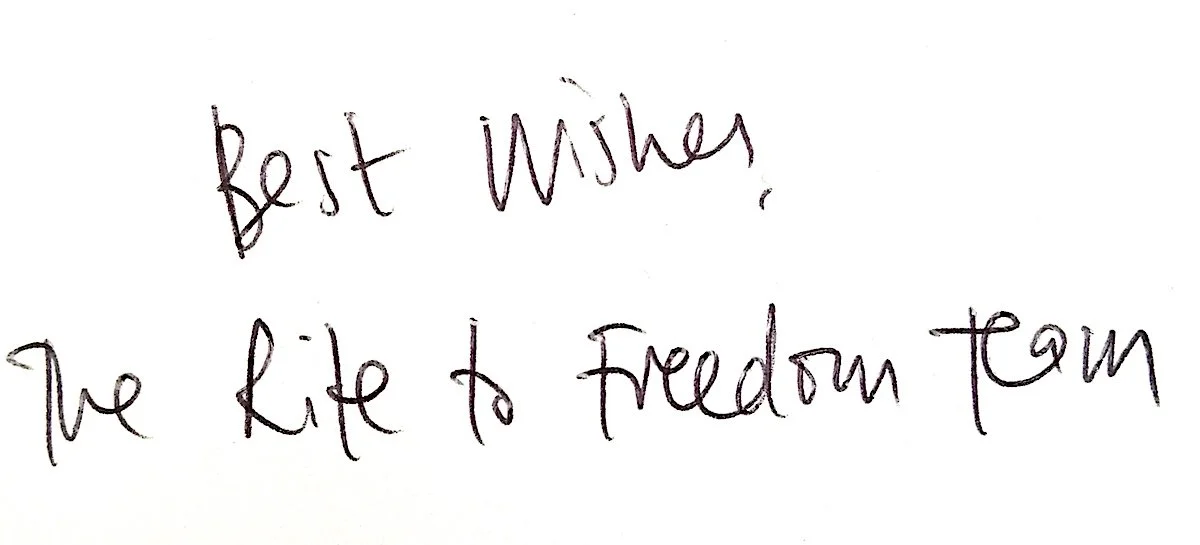 Best Wishes,
The Rite to Freedom Team